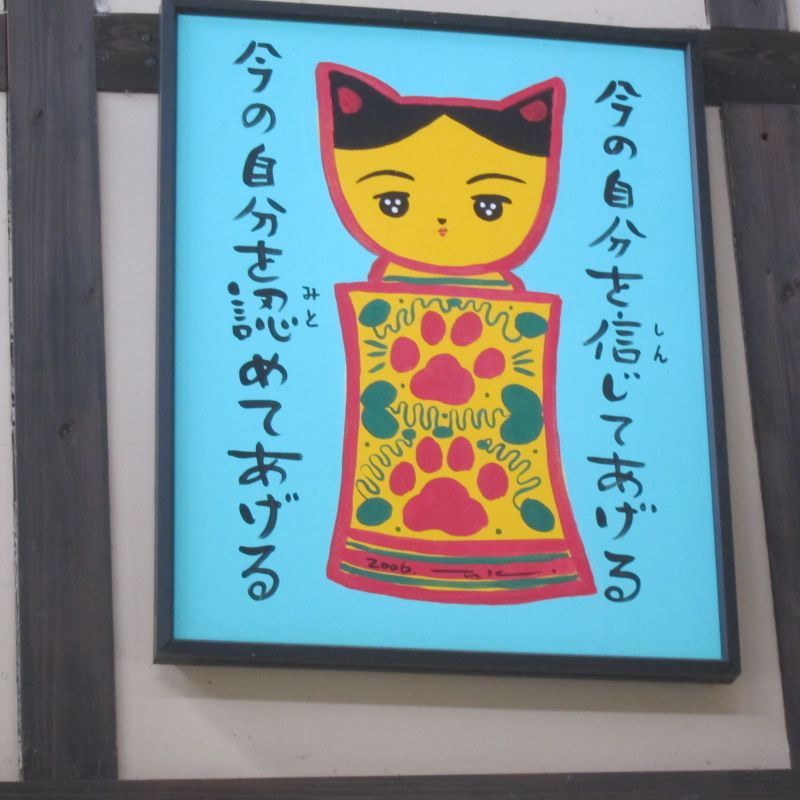 今の自分を信じてあげる
しん
今の自分を認めてあげる
みと
2006.